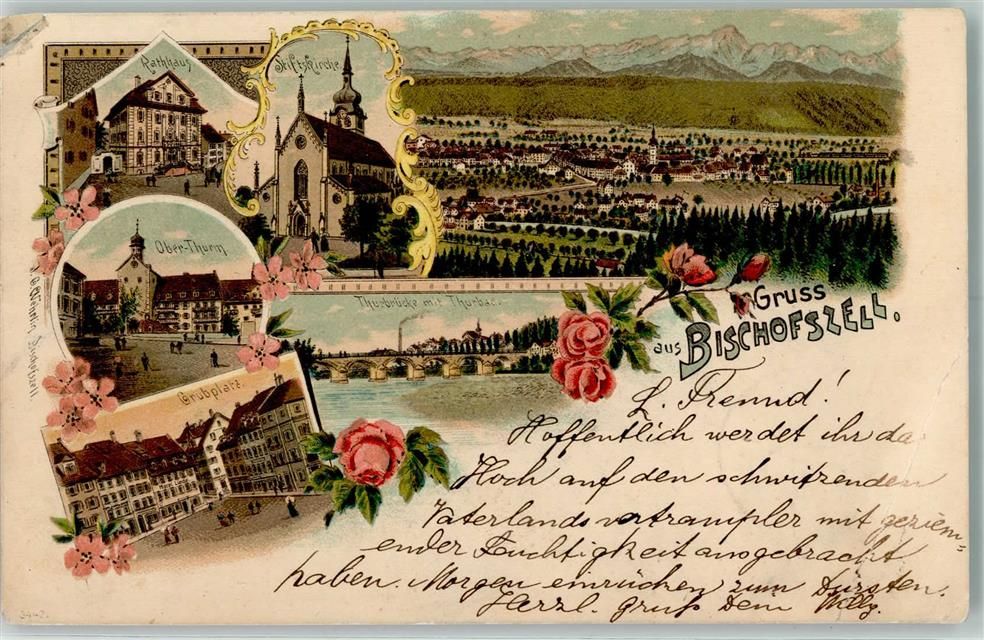 Rathhaus
Stiftskirche
Ober-Thurm
Thurbrücke mit Thurbad.
Grubplatz.
Gruss
aus BISCHOFSZELL.
Bischofszell.
L. Freund!
Hoffentlich werdet ihr das
Hoch auf den schwitzenden
Vaterlandsvertrampler mit geziem=
ender Feuchtigkeit ausgebracht
haben. Morgen einrücken zum Dürsten.
Herzl. Gruß Dein Willy.